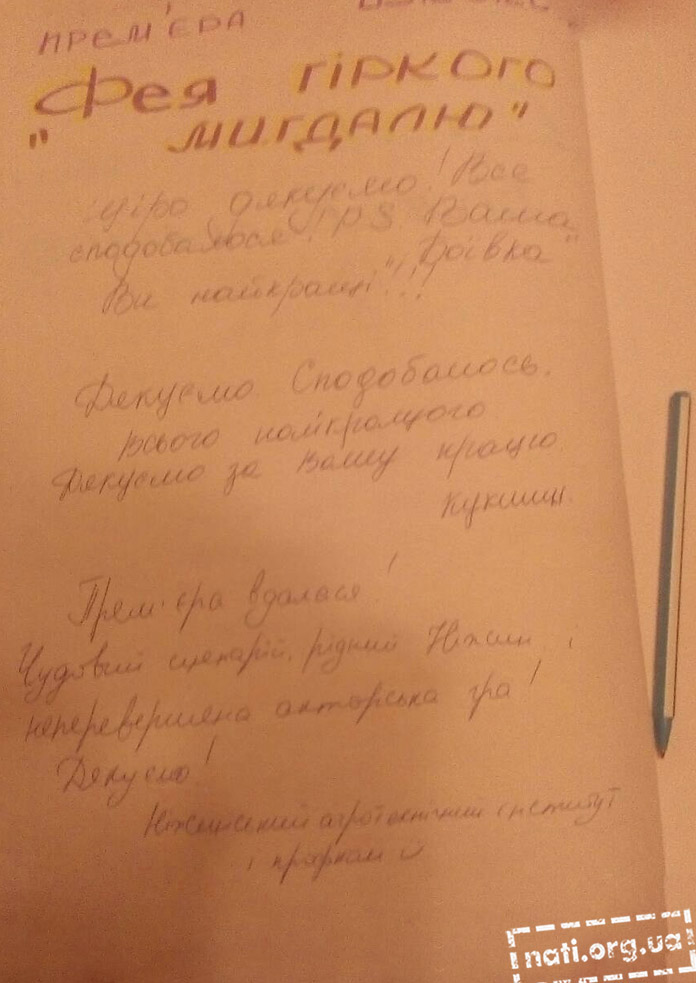 прем'єра
"Фея гіркого
мигдалю"
Щіро дякуємо! Все
сподобалося! PS Ваша
"Боівка"
Ви найкращі!!!
Дякуємо Сподобалось.
Всього найкращого
Дякуємо за Вашу працю
Прем'єра вдалася!
Чудовий сценарій, рідний Ніжин і
неперевершена акторська гра!
Дякуємо!
Ніжинський агротехнічний інститут
і
nati.org.ua